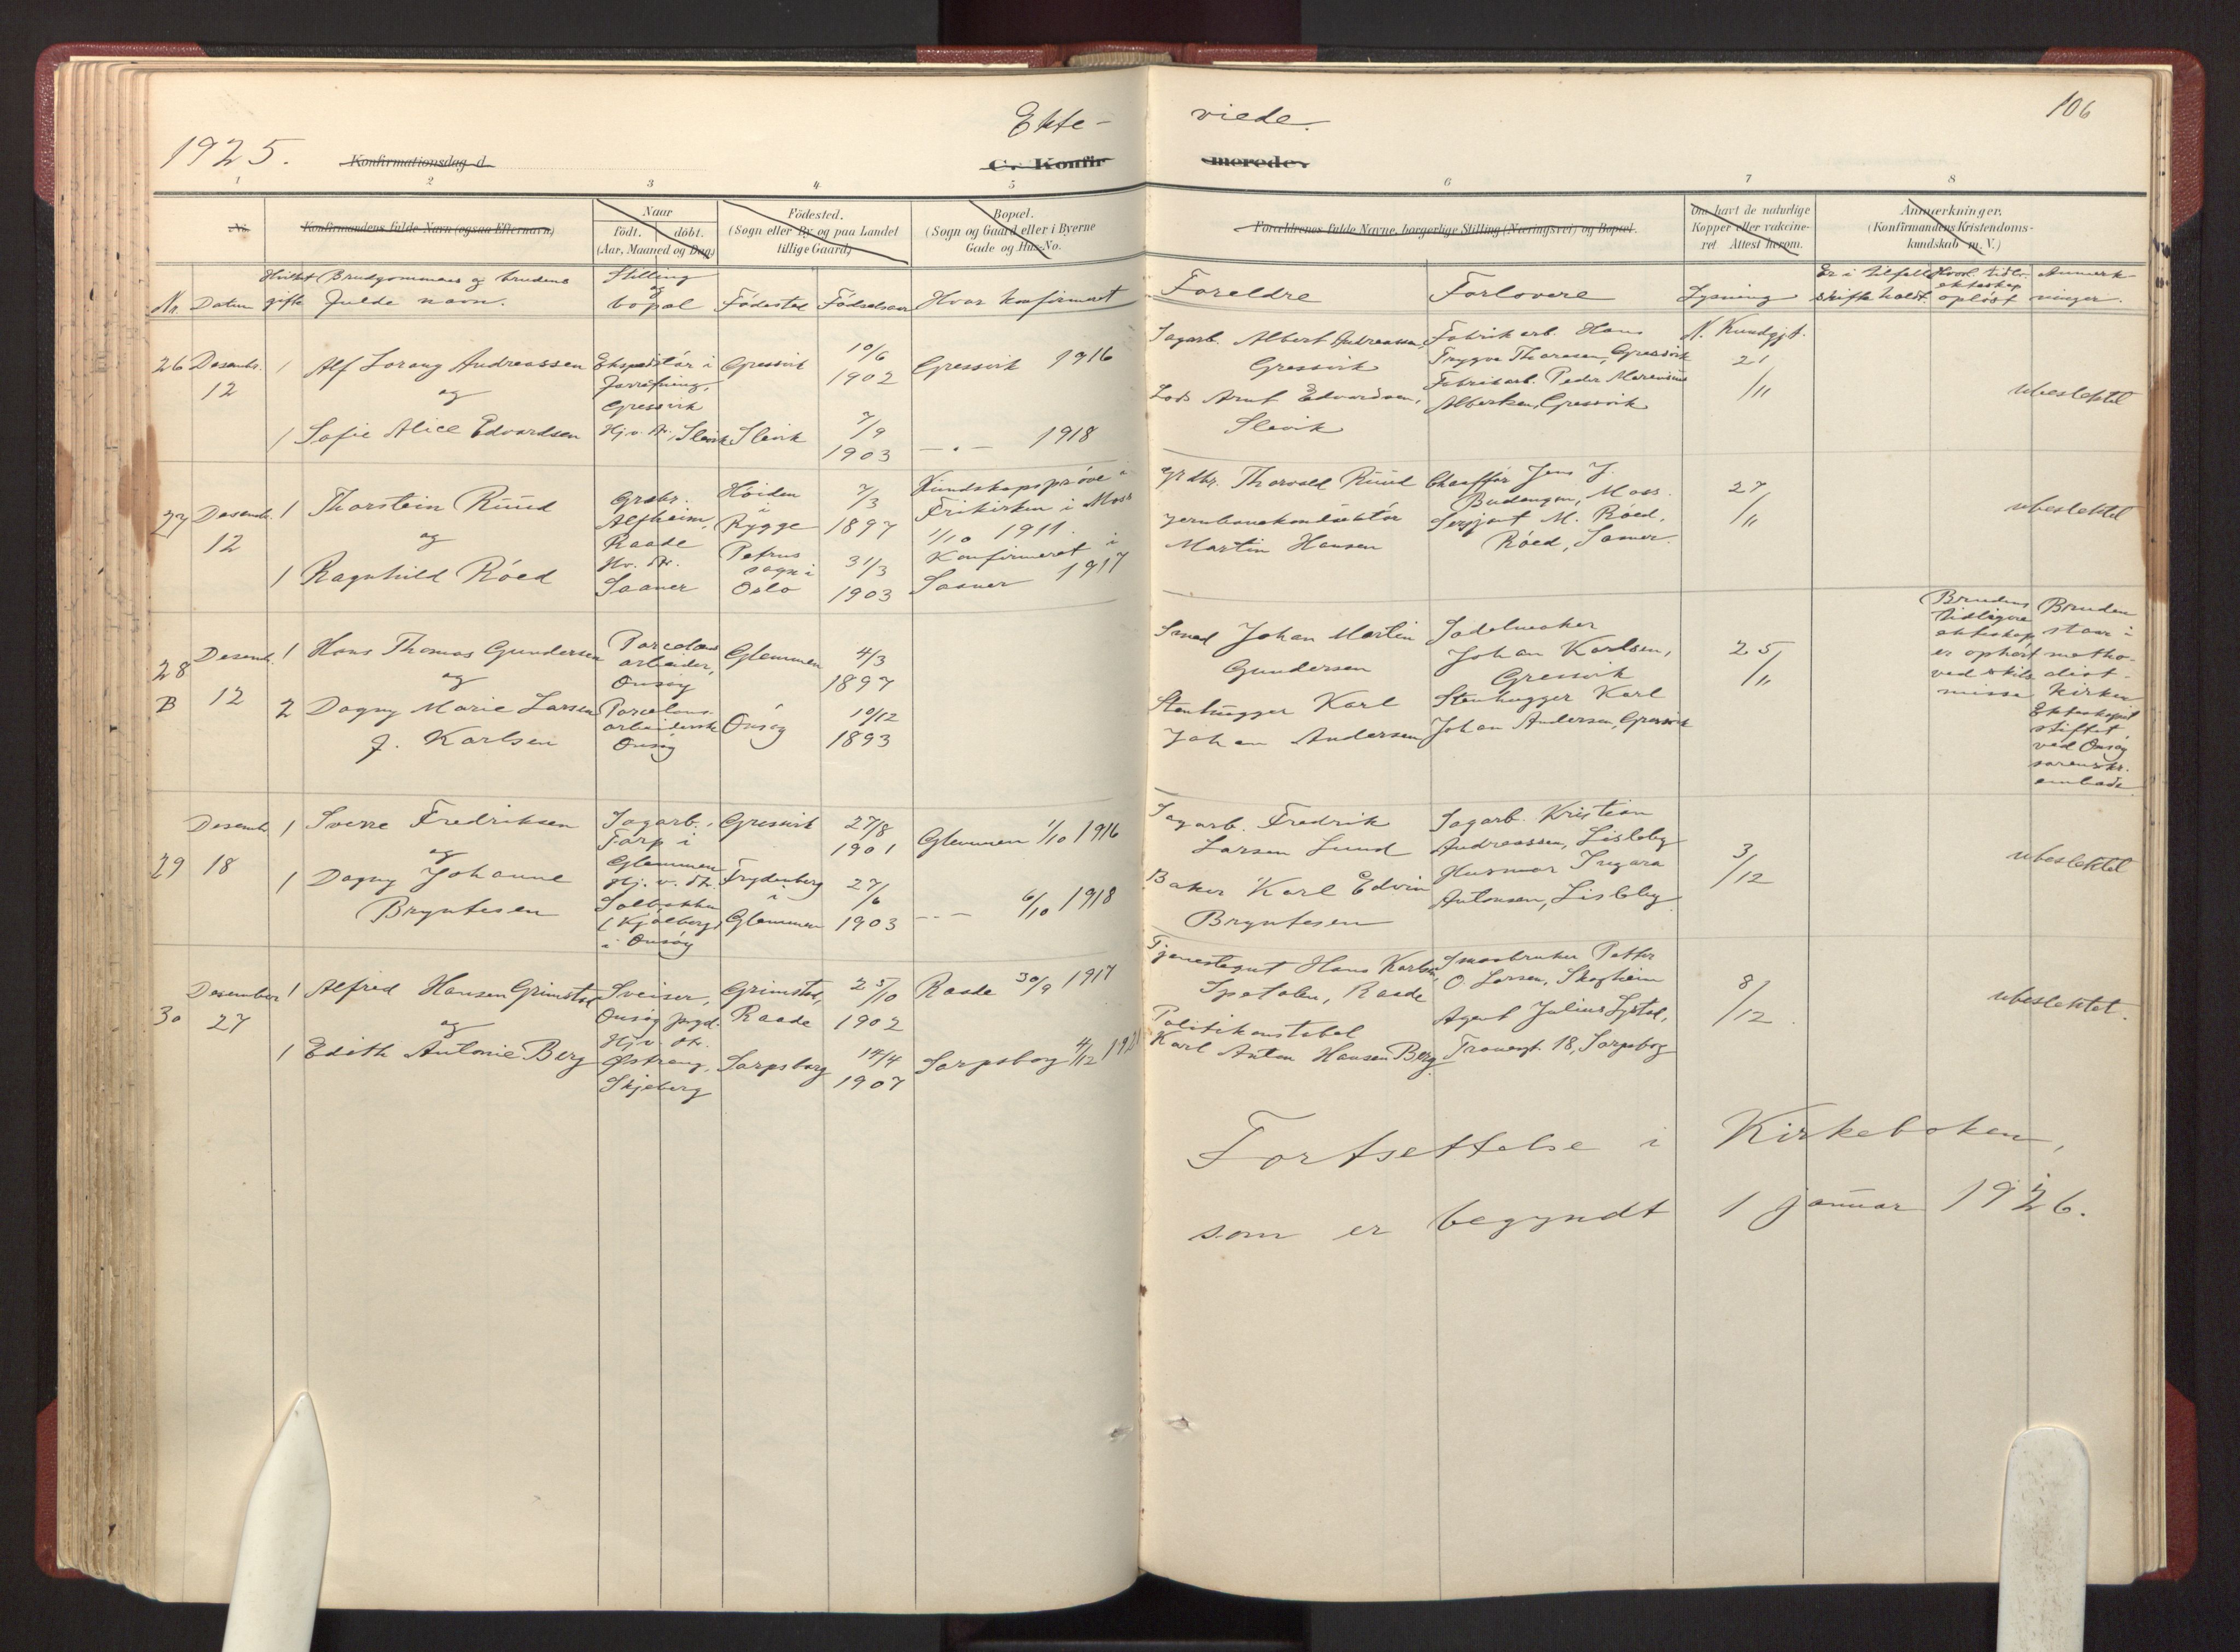 1925.
Ekte-
viede.
106
Konfirmationsdag d.
C. Konfir
merede.
1 2 3 4 5 6 7 8
No.
Konfirmandens fulde Navn (ogsaa Efternavn)
Naar
födt. döbt.
(Aar, Maaned og Dag)
Födested.
(Sogn eller By og paa Landet
tillige Gaard)
Bopæl.
(Sogn og Gaard eller i Byerne
Gade og Hus-No.
Forældrenes fulde Navne, borgerlige Stilling (Næringsvei) og Bopæl.
Om havt de naturlige
Kopper eller vakcine-
ret Attest herom.
Anmerkninger.
(Konfirmandens Kristendoms-
kundskab m. V.)
Nr.
Datum
Hvilket
gifte
Brudgommens og brudens
fulde navn.
Stilling
og
bopæl
Födested
Födselsaar
Hvor konfirmert
Foreldre
Forlovere
Lysning
Er i tilfelle
skifte holdt.
Hvord. tidl.
ekteskap
opløst
Anmerk-
ninger.
26
Desembr.
12
1 Alf Lorang Andreassen
og
1 Sofie Alice Edvardsen
Ekspeditör i
forretning,
Gressvik
Hj. v. dr., Slevik
Gressvik
Slevik
10/6
1902
7/9
1903
Gressvik 1916
— " — 1918
Sagarb. Albert Andreassen,
Gressvik
Lods Arnt Edvardsen,
Slevik
Fabrikarb. Hans
Trygve Thoresen, Gressvik
Fabrikarb. Peder Marensius
Albertsen, Gressvik
N. Kundgjt.
21
/11
ubeslektet
27
Desemb.
12
1 Thorstein Ruud
og
1 Ragnhild Röed
Grdbr.
Alfheim,
Raade
Hv. dr.
Saaner
Höiden
i
Rygge
Petrus
sogn i
Oslo
7/3
1897
31/3
1903
Kundskapspröve i
Frikirken i Moss
1/10 1911.
Konfirmeret i
Saaner 1917
Grdbr. Thorvald Ruud
Jernbanekonduktör
Martin Hansen
Chaufför Jens J.
Budangen, Moss.
Serjant M. Röed,
Röed, Saaner.
27
/11
ubeslektet
28
B
Desemb.
12
1 Hans Thomas Gundersen
og
2 Dagny Marie Larsen
f. Karlsen
Porcelæns
arbeider,
Onsöy
Porcelæns-
arbeiderske
Onsöy
Glemmen
Onsöy
4/3
1897
10/12
1893
Smed Johan Martin
Gundersen
Stenhugger Karl
Johan Andersen
Sadelmaker
Johan Karlsen,
Gressvik
Stenhugger Karl
Johan Andersen, Gressvik
25
/11
Brudens
tidligere
ekteskap
er ophørt
ved skils-
misse
Bruden
staar i
metho-
dist-
kirken
Ekteskapet
stiftet
ved Onsöy
sorenskr.
embede.
29
Desemb.
18
1 Sverre Fredriksen
og
1 Dagny Johanne
Bryntesen
Sagarb.,
Torp i
Glemmen
Hj. v. dr.
Solbakken
(Kjölberg)
i Onsöy
Gressvik
Frydenberg
i
Glemmen
27/8
1901
27/6
1903
Glemmen 1/10 1916
— " — 6/10 1918
Sagarb. Fredrik
Larsen Lund
Baker Karl Edvin
Bryntesen
Sagarb. Kristian
Andreassen, Lisleby
Husmor Ingara
Antonsen, Lisleby
3
/12
ubeslektet
30
Desember
27
1 Alfred Hansen Grimstad
og
1 Edith Antonie Berg
Sveiser,
Onsöy prgd.
Hj. v. dr.
Østreng,
Skjeberg
Grimstad,
Raade
Sarpsborg
25/10
1902
14/4
1907
Raade 30/9 1917
Sarpsborg 4/12 1921
Tjenestegut Hans Karlsen,
Spetalen, Raade
Politikonstabel
Karl Anton Hansen Berg
Smaabruker Petter
O. Larsen, Skogheim
Agent Julius Lystad,
Tronesgt. 18, Sarpsborg
8
/12.
ubeslektet.
Fortsettelse i Kirkeboken,
som er begyndt 1 januar 1926.